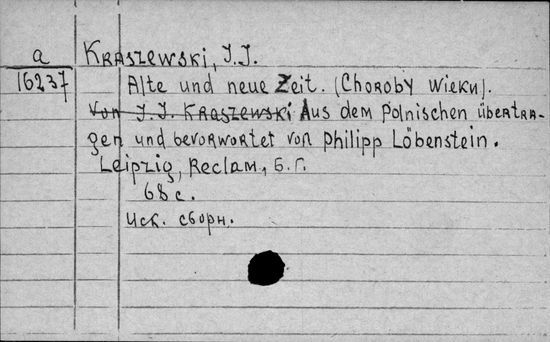 a
16237
Kraszewski, J.J.
Alte und neue Zeit. (Choroby wieku).
Von J.J. Kraszewski Aus dem Polnischen übertra-
gen und bevorwortet von Philipp Löbenstein.
Leipzig, Reclam, б.г.
68 с.
Иск. сборн.